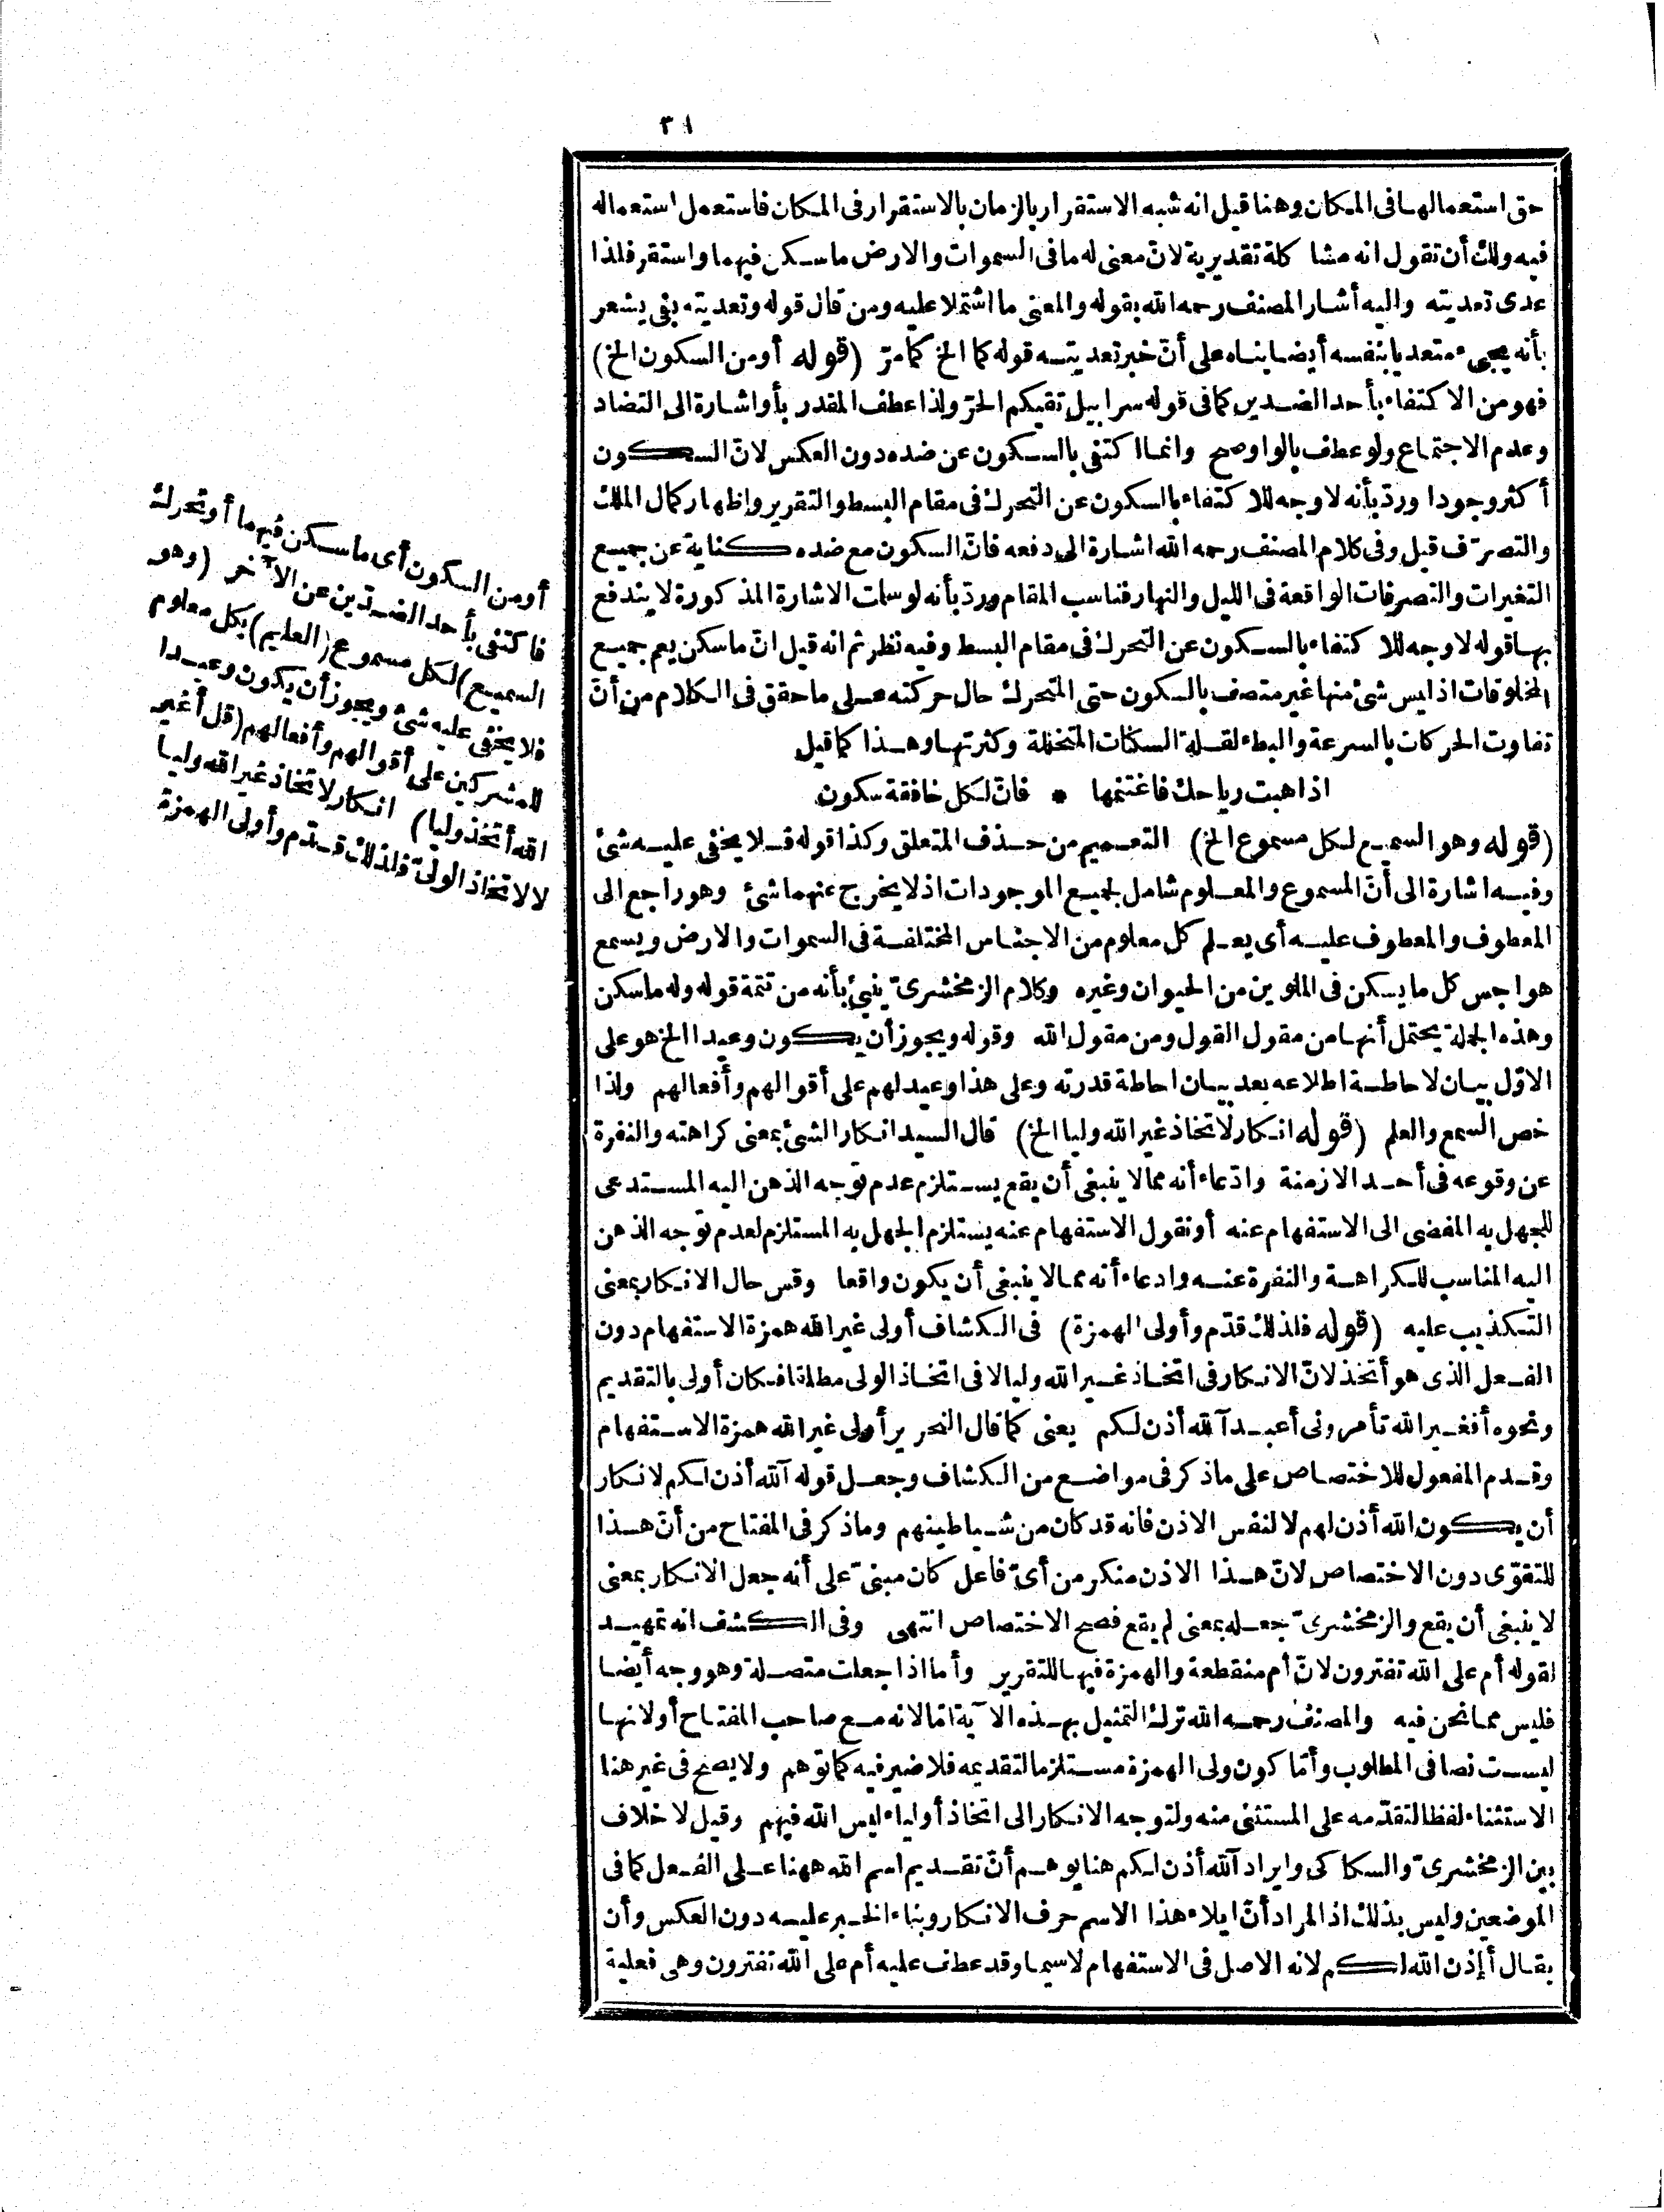 ٣١
حق استعمالها فى المكان وهنا قيل انه شبه الاستقرار بالزمان بالاستقرار فى المكان فاستعمل استعماله
فيه ولك أن تقول انه مشاكلة تقديرية لانّ معنى له ما فى السموات والارض ما سكن فيهما واستقر فلذا
عدى تعديته واليه أشار المصنف رحمه الله بقوله والمعنى ما اشتملا عليه ومن قال قوله وتعديته بفى يشعر
بأنه يجىء متعديا بنفسه أيضا بناه على أنّ خبر تعديته قوله كما الخ كما مرّ (قوله أو من السكون الخ)
فهو من الاكتفاء بأحد الضدين كما فى قوله سرابيل تقيكم الحرّ ولذا عطف المقدر بأو اشارة الى التضاد
وعدم الاجتماع ولو عطف بالواو صح وانما اكتفى بالسكون عن ضده دون العكس لانّ السكون
أكثر وجودا وردّ بأنه لا وجه للاكتفاء بالسكون عن التحرك فى مقام البسط والتقرير واظهار كمال الملك
والتصرّف قيل وفى كلام المصنف رحمه الله اشارة الى دفعه فانّ السكون مع ضده كناية عن جميع
التغيرات والتصرفات الواقعة فى الليل والنهار فناسب المقام وردّ بأنه لو سلمت الاشارة المذكورة لا يندفع
بها قوله لا وجه للاكتفاء بالسكون عن التحرك فى مقام البسط وفيه نظر ثم انه قيل انّ ما سكن يعم جميع
المخلوقات اذ ليس شئ منها غير متصف بالسكون حتى المتحرك حال حركته على ما حقق فى الكلام من أنّ
تفاوت الحركات بالسرعة والبطء لقلة السكنات المتخللة وكثرتها وهذا كما قيل
اذا هبت رياحك فاغتنمها * فانّ لكل خافقة سكون
(قوله وهو السميع لكل مسموع الخ) التعميم من حذف المتعلق وكذا قوله فلا يخفى عليه شئ
وفيه اشارة الى أنّ المسموع والمعلوم شامل لجميع الموجودات اذ لا يخرج عنهما شئ وهو راجع الى
المعطوف والمعطوف عليه أى يعلم كل معلوم من الاجناس المختلفة فى السموات والارض ويسمع
هواجس كل ما يسكن فى الملوين من الحيوان وغيره وكلام الزمخشرىّ ينبئ بأنه من تتمة قوله وله ما سكن
وهذه الجملة يحتمل أنها من مقول القول ومن مقول الله وقوله ويجوز أن يكون وعيدا الخ هو على
الاوّل بيان لاحاطة اطلاعه بعد بيان احاطة قدرته وعلى هذا وعيد لهم على أقوالهم وأفعالهم ولذا
خص السمع والعلم (قوله انكار لاتخاذ غير الله وليا الخ) قال السيد انكار الشئ بمعنى كراهته والنفرة
عن وقوعه فى أحد الازمنة وادّعاء أنه مما لا ينبغى أن يقع يستلزم عدم توجه الذهن اليه المستدعى
للجهل به المفضى الى الاستفهام عنه أو نقول الاستفهام عنه يستلزم الجهل به المستلزم لعدم توجه الذهن
اليه المناسب للكراهة والنفرة عنه وادعاء أنه مما لا ينبغى أن يكون واقعا وقس حال الانكار بمعنى
التكذيب عليه (قوله فلذلك قدّم وأولى الهمزة) فى الكشاف أولى غير الله همزة الاستفهام دون
الفعل الذى هو أتخذ لانّ الانكار فى اتخاذ غير الله وليا لا فى اتخاذ الولى مطلقا فكان أولى بالتقديم
ونحوه أفغير الله تأمرونى أعبد آلله أذن لكم يعنى كما قال النحرير أولى غير الله همزة الاستفهام
وقدم المفعول للاختصاص على ما ذكر فى مواضع من الكشاف وجعل قوله آلله أذن لكم لانكار
أن يكون الله أذن لهم لا لنفس الاذن فانه قد كان من شياطينهم وما ذكر فى المفتاح من أنّ هذا
للتقوّى دون الاختصاص لانّ هذا الاذن منكر من أىّ فاعل كان مبنىّ على أنه جعل الانكار بمعنى
لا ينبغى أن يقع والزمخشرىّ جعله بمعنى لم يقع فصح الاختصاص انتهى وفى الكشف انه تمهيد
لقوله أم على الله تفترون لانّ أم منقطعة والهمزة فيها للتقرير وأما اذا جعلت متصلة وهو وجه أيضا
فليس مما نحن فيه والمصنف رحمه الله ترك التمثيل بهذه الآية امّا لانه مع صاحب المفتاح أو لانها
ليست نصا فى المطلوب وأمّا كون ولى الهمزة مستلزما لتقديمه فلا ضير فيه كما توهم ولا يصح فى غير هنا
الاستثناء لفظا لتقدّمه على المستثنى منه ولتوجه الانكار الى اتخاذ أولياء ليس الله فيهم وقيل لا خلاف
بين الزمخشرىّ والسكاكى وايراد آلله أذن لكم هنا يوهم أنّ تقديم اسم الله ههنا على الفعل كما فى
الموضعين وليس بذلك اذ المراد أنّ ايلاء هذا الاسم حرف الانكار وبناء الخبر عليه دون العكس وأن
يقال أإذن الله لكم لانه الاصل فى الاستفهام لا سيما وقد عطف عليه أم على الله تفترون وهى فعلية
أو من السكون أى ما سكن فيهما أو تحرك
فاكتفى بأحد الضدّين عن الآخر (وهو
السميع) لكل مسموع (العليم) بكل معلوم
فلا يخفى عليه شئ ويجوز أن يكون وعيدا
للمشركين على أقوالهم وأفعالهم (قل أغير
الله أتخذ وليا) انكار لاتخاذ غير الله وليا
لا لاتخاذ الولىّ فلذلك قدّم وأولى الهمزة